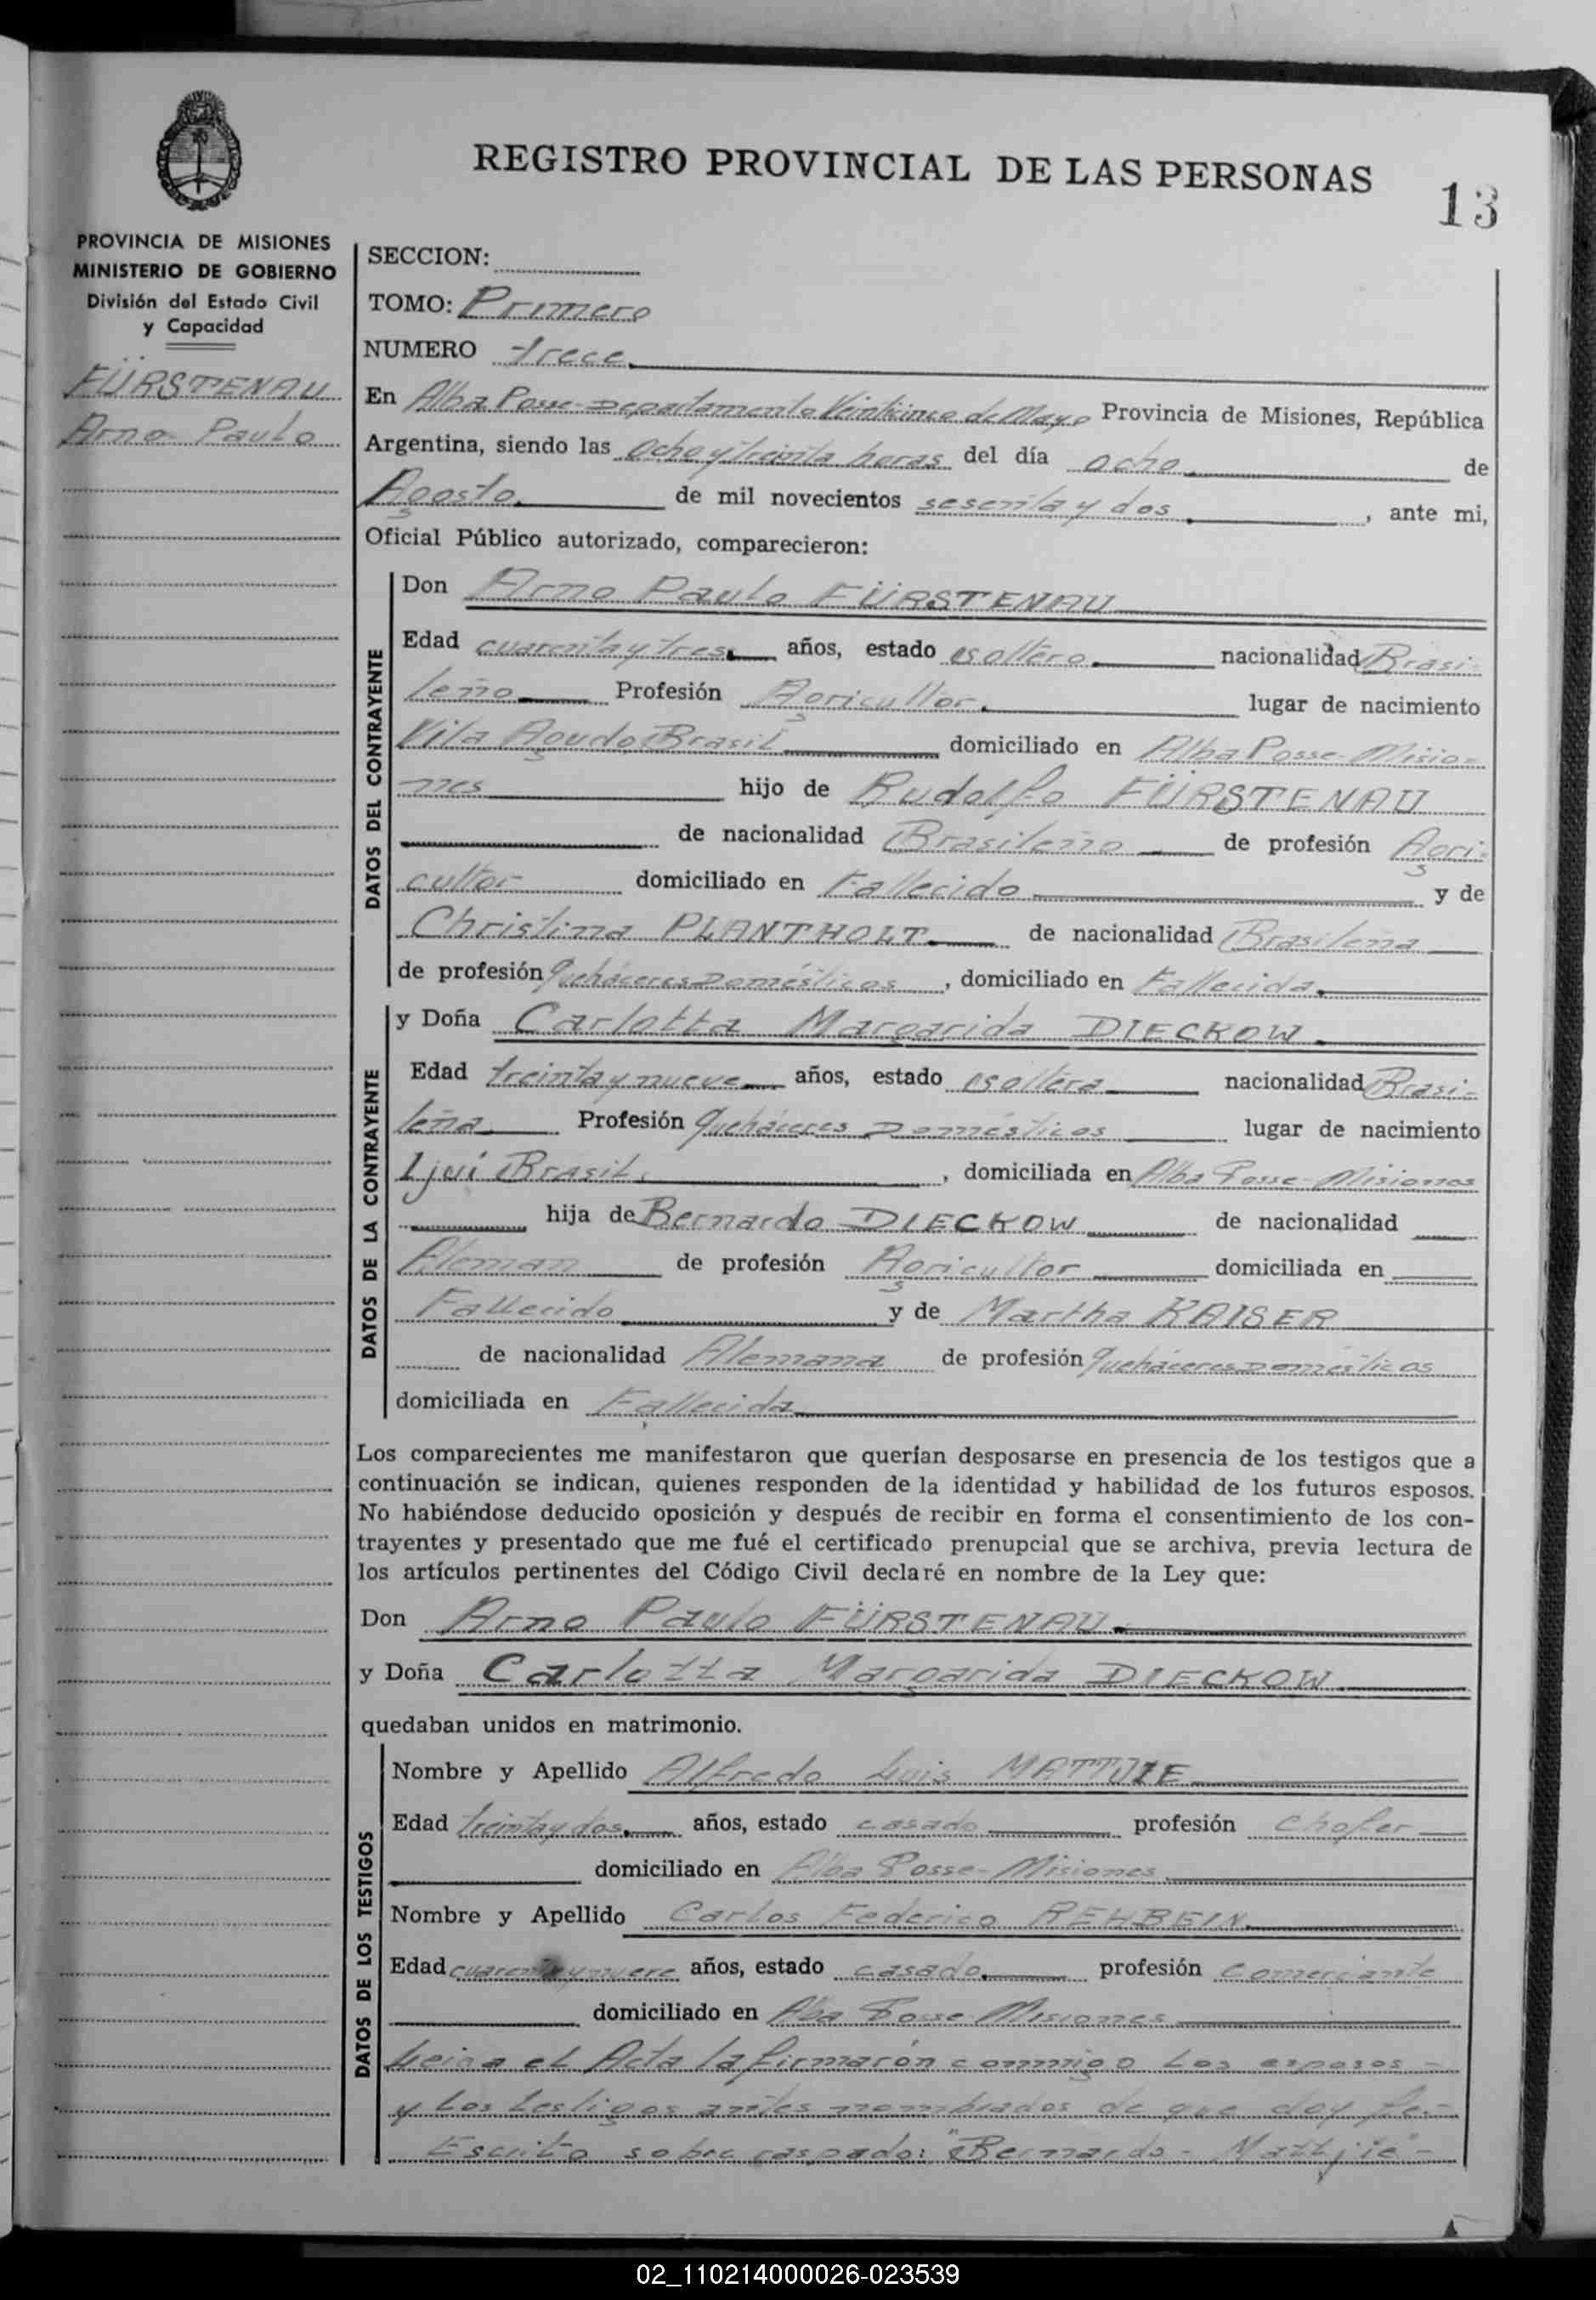 REGISTRO PROVINCIAL DE LAS PERSONAS
13
PROVINCIA DE MISIONES
MINISTERIO DE GOBIERNO
División del Estado Civil
y Capacidad
FÜRSTENAU
Arno Paulo
SECCION:
TOMO: Primero
NUMERO trece
En Alba Posse-Departamento Veinticinco de Mayo Provincia de Misiones, República
Argentina, siendo las ocho y treinta horas del día ocho de
Agosto de mil novecientos sesenta y dos, ante mi,
Oficial Público autorizado, comparecieron:
DATOS DEL CONTRAYENTE
Don Arno Paulo FÜRSTENAU
Edad cuarenta y tres años, estado soltero nacionalidad Brasi-
leño Profesión Agricultor lugar de nacimiento
Vila Agudo, Brasil domiciliado en Alba Posse-Misio-
nes hijo de Rudolfo FÜRSTENAU
de nacionalidad Brasileño de profesión Agri-
cultor domiciliado en Fallecido y de
Christina PLANTHOLT de nacionalidad Brasileña
de profesión Quehaceres Domésticos, domiciliado en Fallecida
DATOS DE LA CONTRAYENTE
y Doña Carlotta Margarida DIECKOW
Edad treinta y nueve años, estado soltera nacionalidad Brasi-
leña Profesión Quehaceres Domésticos lugar de nacimiento
Ijui Brasil, domiciliada en Alba Posse-Misiones
hija de Bernardo DIECKOW de nacionalidad
Aleman de profesión Agricultor domiciliada en
Fallecido y de Martha KAISER
de nacionalidad Alemana de profesión Quehaceres Domésticos
domiciliada en Fallecida
Los comparecientes me manifestaron que querían desposarse en presencia de los testigos que a
continuación se indican, quienes responden de la identidad y habilidad de los futuros esposos.
No habiéndose deducido oposición y después de recibir en forma el consentimiento de los con-
trayentes y presentado que me fué el certificado prenupcial que se archiva, previa lectura de
los artículos pertinentes del Código Civil declaré en nombre de la Ley que:
Don Arno Paulo FÜRSTENAU
y Doña Carlotta Margarida DIECKOW
quedaban unidos en matrimonio.
DATOS DE LOS TESTIGOS
Nombre y Apellido Alfredo Luis
Edad treinta y dos años, estado casado profesión Chofer
domiciliado en Alba Posse-Misiones
Nombre y Apellido Carlos Federico REHBEIN
Edad cuarenta y nueve años, estado casado profesión Comerciante
domiciliado en Alba Posse-Misiones
Leida el Acta la firmarón conmigo los esposos-
y los testigos antes nombrados de que doy fe.-
Escrito sobre raspado: "Bernardo-
02_110214000026-023539